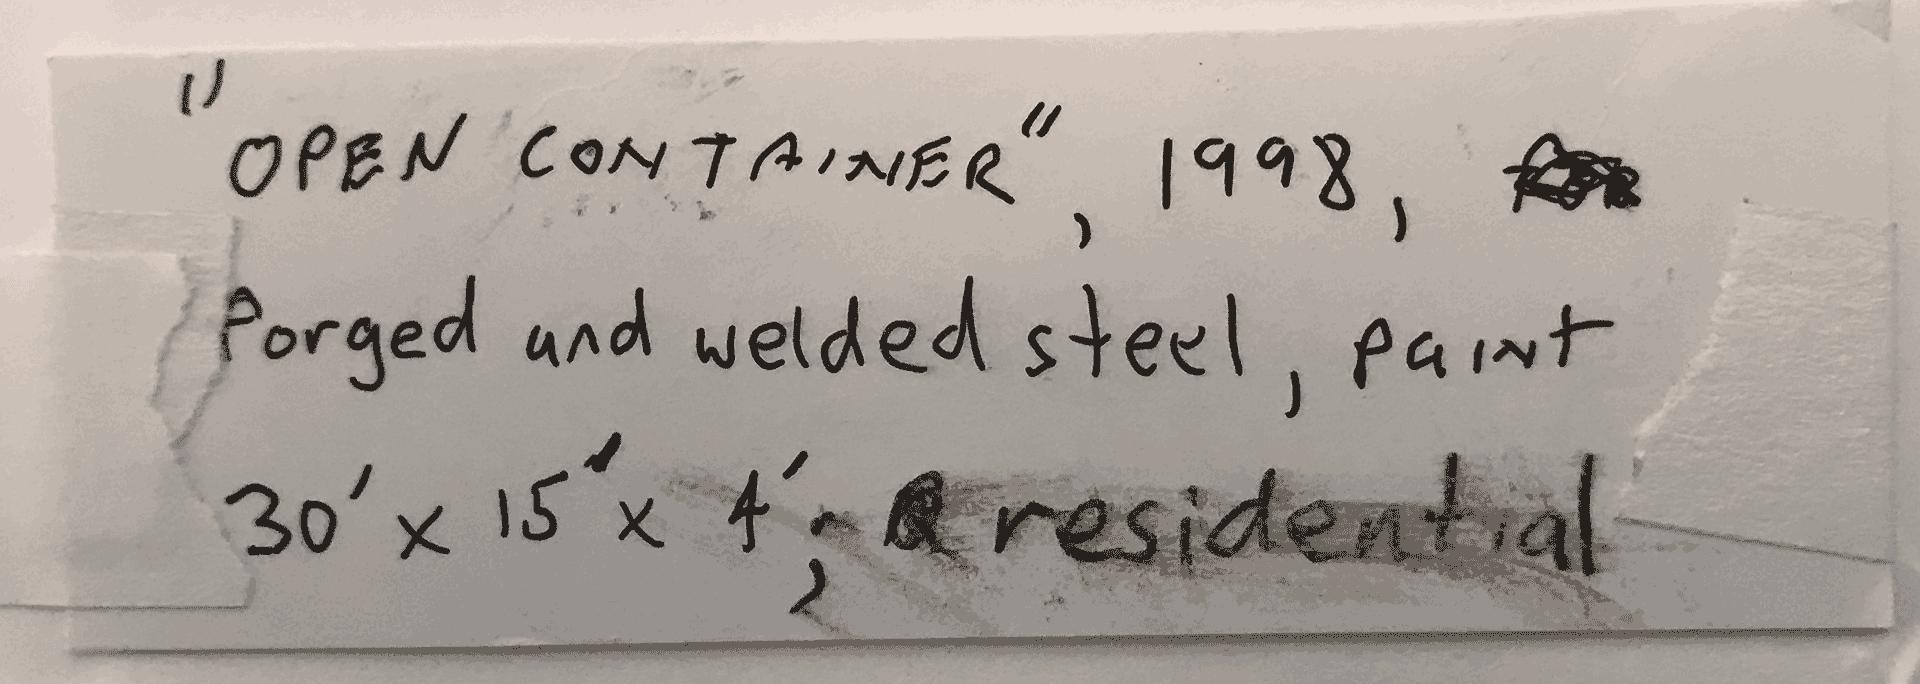 "OPEN CONTAINER", 1998,
Forged and welded steel, paint
30' x 15' x 4', residential